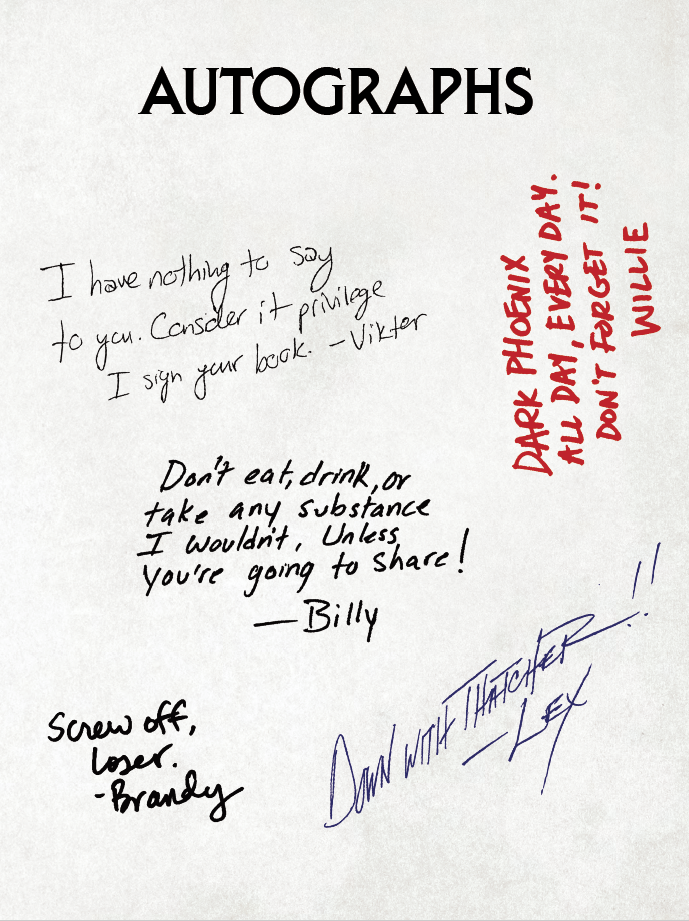 AUTOGRAPHS
I have nothing to say
to you. Consider it privilege
I sign your book. -Vikter
DARK PHOENIX
ALL DAY, EVERY DAY.
DON'T FORGET IT!
WILLIE
Don't eat, drink, or
take any substance
I wouldn't, Unless
You're going to share!
—Billy
DOWN WITH THATCHER!!
—LEX
Screw off,
loser.
-Brandy